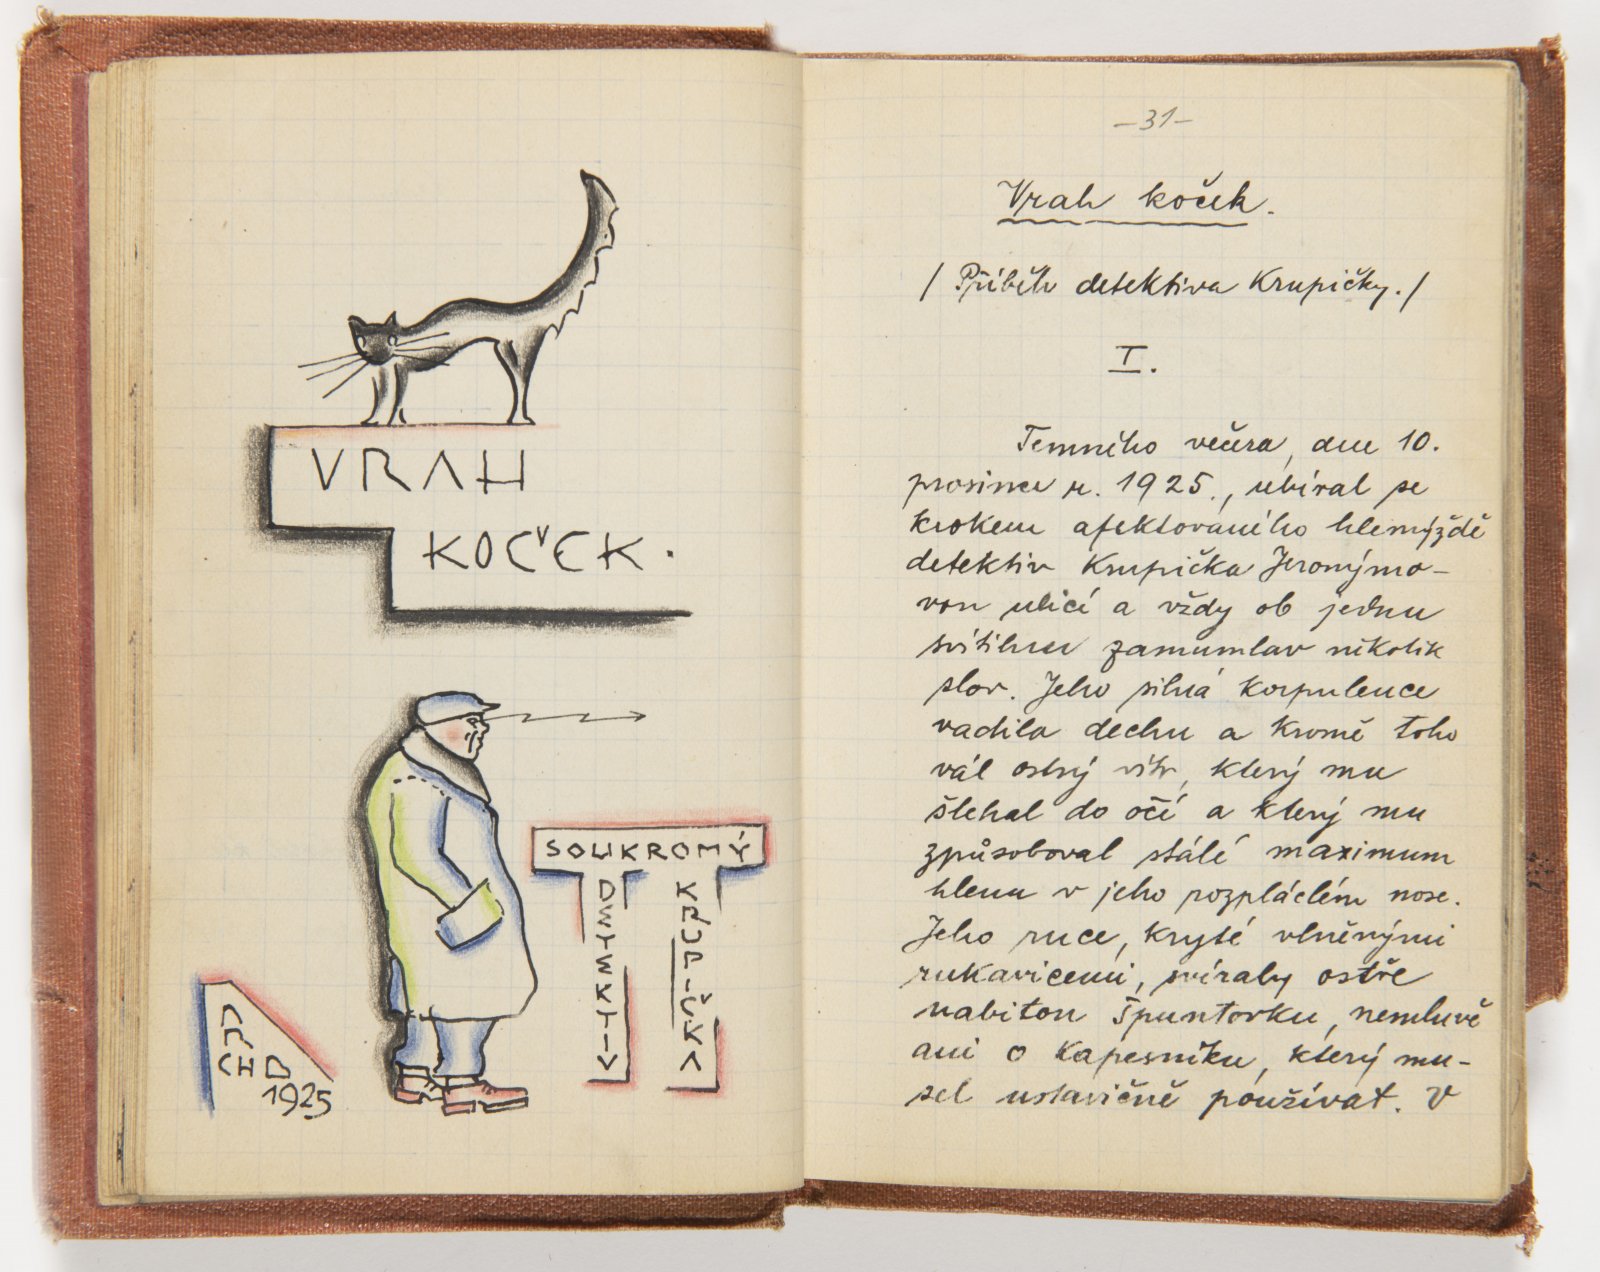 VRAH
KOČEK.
SOUKROMÝ
DETEKTIV
KRUPIČKA
1925
—31—
Vrah koček.
/ Příběh detektiva Krupičky. /
I.
Temného večera, dne 10.
prosince r. 1925., ubíral se
krokem afektovaného hlemýždě
detektiv Krupička Jeronýmo-
vou ulicí a vždy ob jednu
svítilnu zamumlav několik
slov. Jeho silná korpulence
vadila dechu a kromě toho
vál ostrý vítr, který mu
šlehal do očí a který mu
způsoboval stálé maximum
hlenu v jeho rozpláclém nose.
Jeho ruce, kryté vlněnými
rukavicemi, svíraly ostře
nabitou špuntovku, nemluvě
ani o kapesníku, který mu-
sel ustavičně používat. V